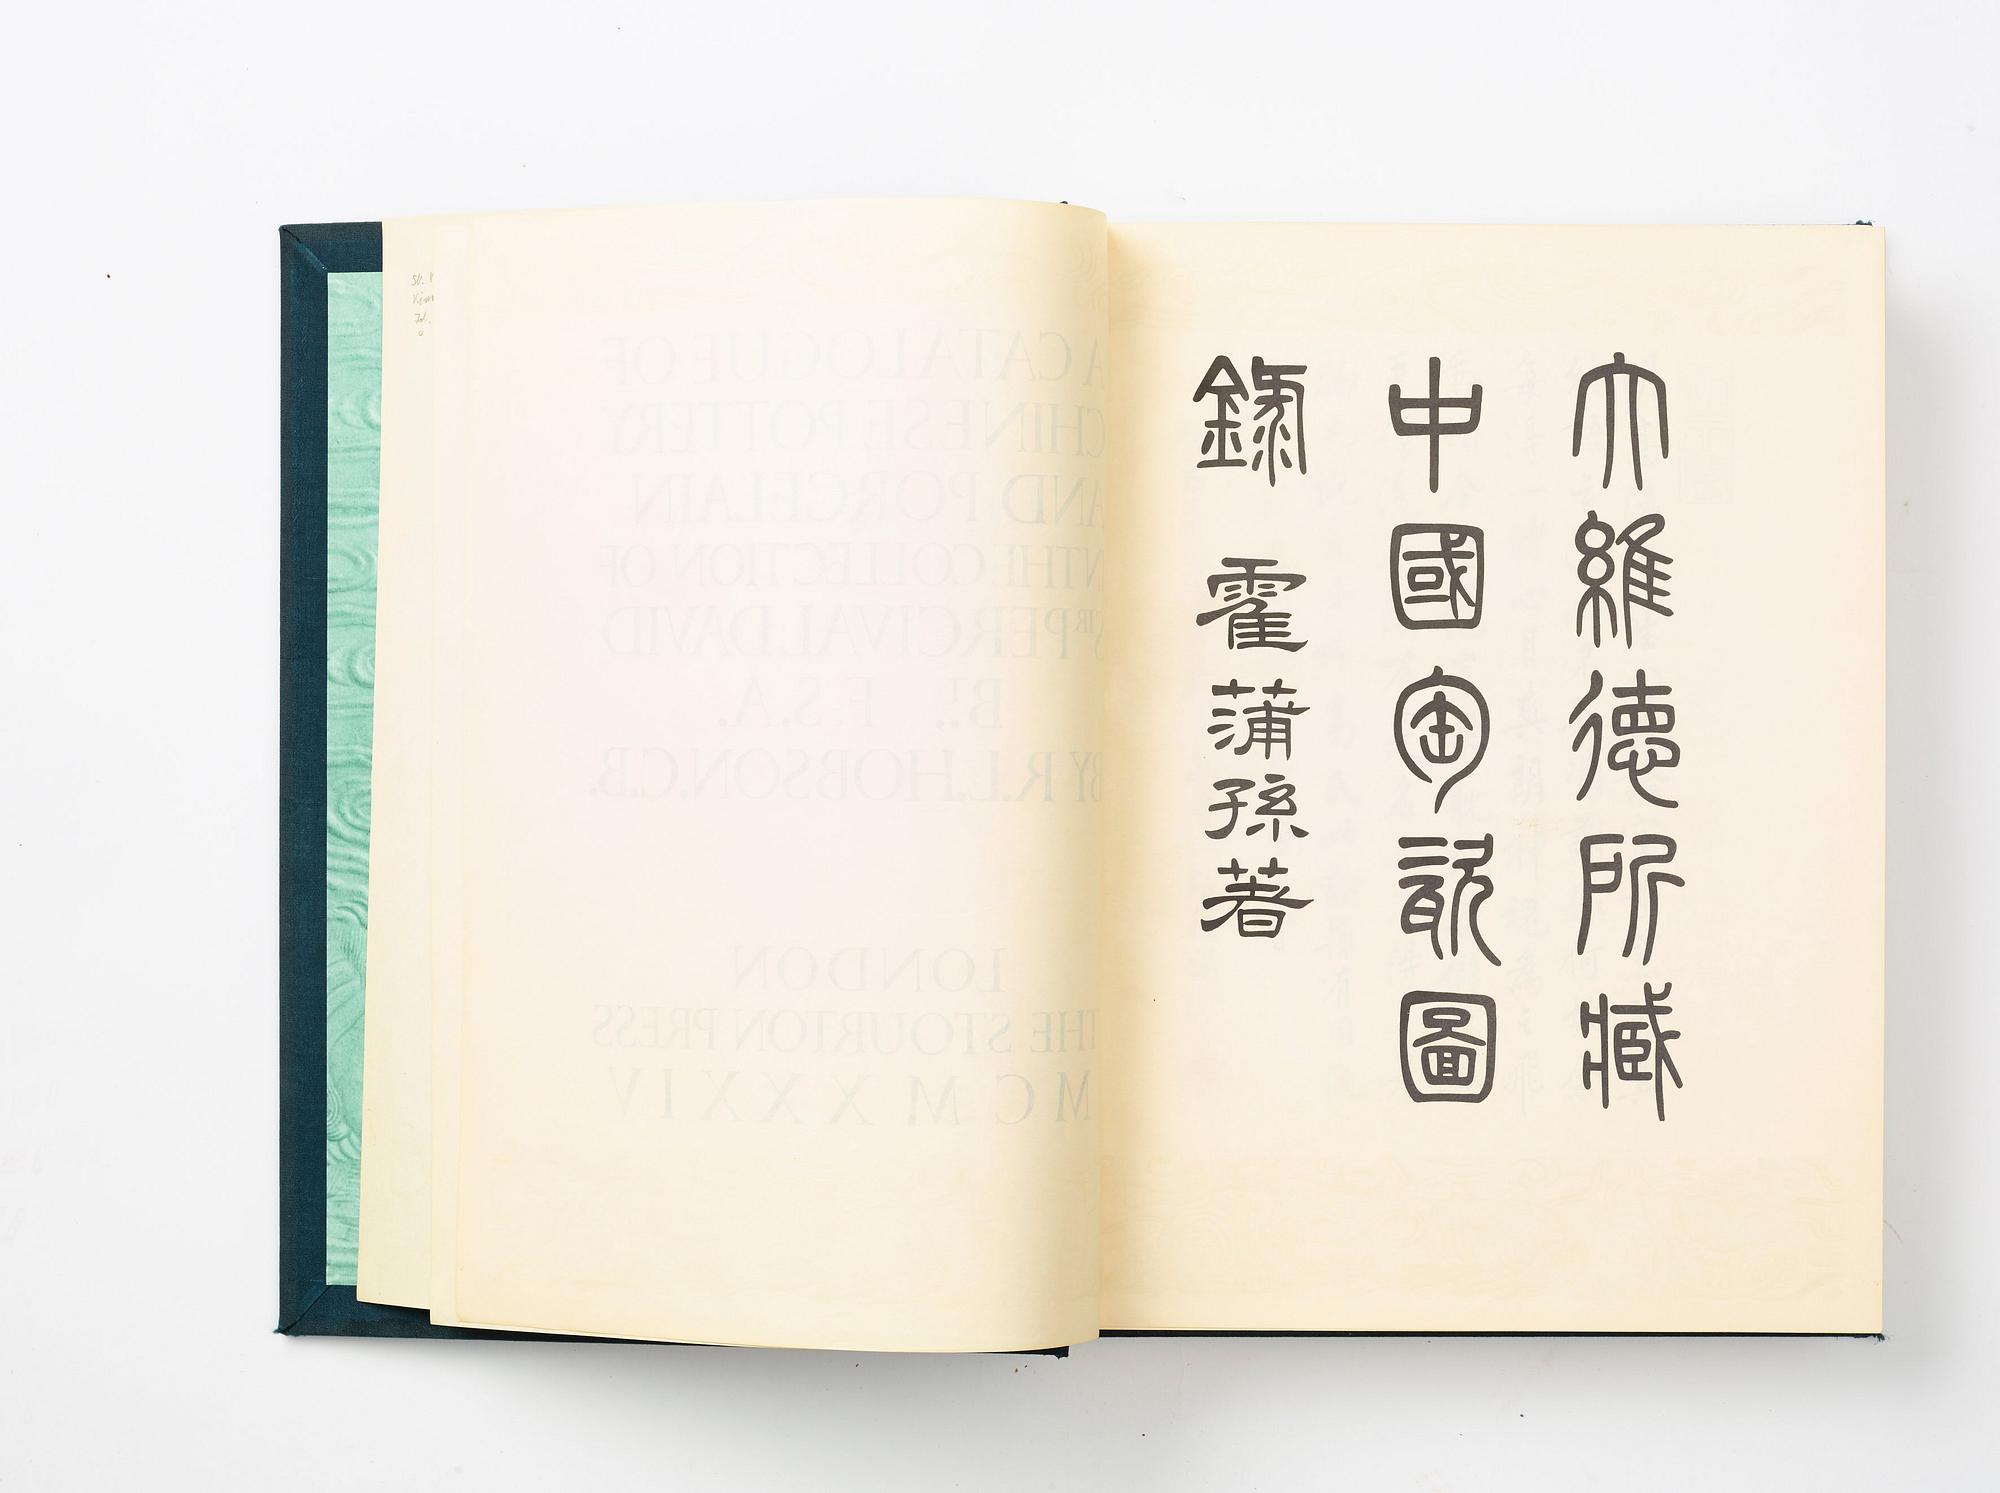 A CATALOGUE OF
CHINESE POTTERY
AND PORCELAIN
IN THE COLLECTION OF
SIR PERCIVAL DAVID
BT. F.S.A.
BY R.L. HOBSON, C.B.
LONDON
THE STOURTON PRESS
MCMXXXIV
大維德所臧
中國匋瓷圖
錄 霍蒲孫著